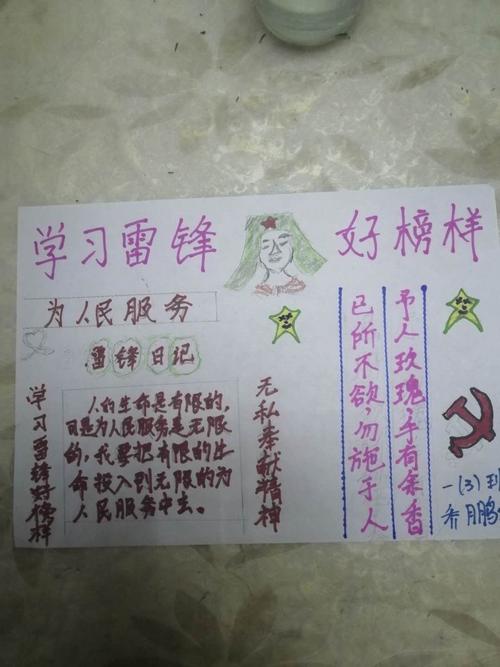 学习雷锋 好榜样
为人民服务
雷锋日记
人的生命是有限的，
可是为人民服务是无限
的，我要把有限的生
命投入到无限的为
人民服务中去。
学习雷锋好榜样
无私奉献精神
予人玫瑰，手有余香
己所不欲，勿施于人
一(3)
鹏